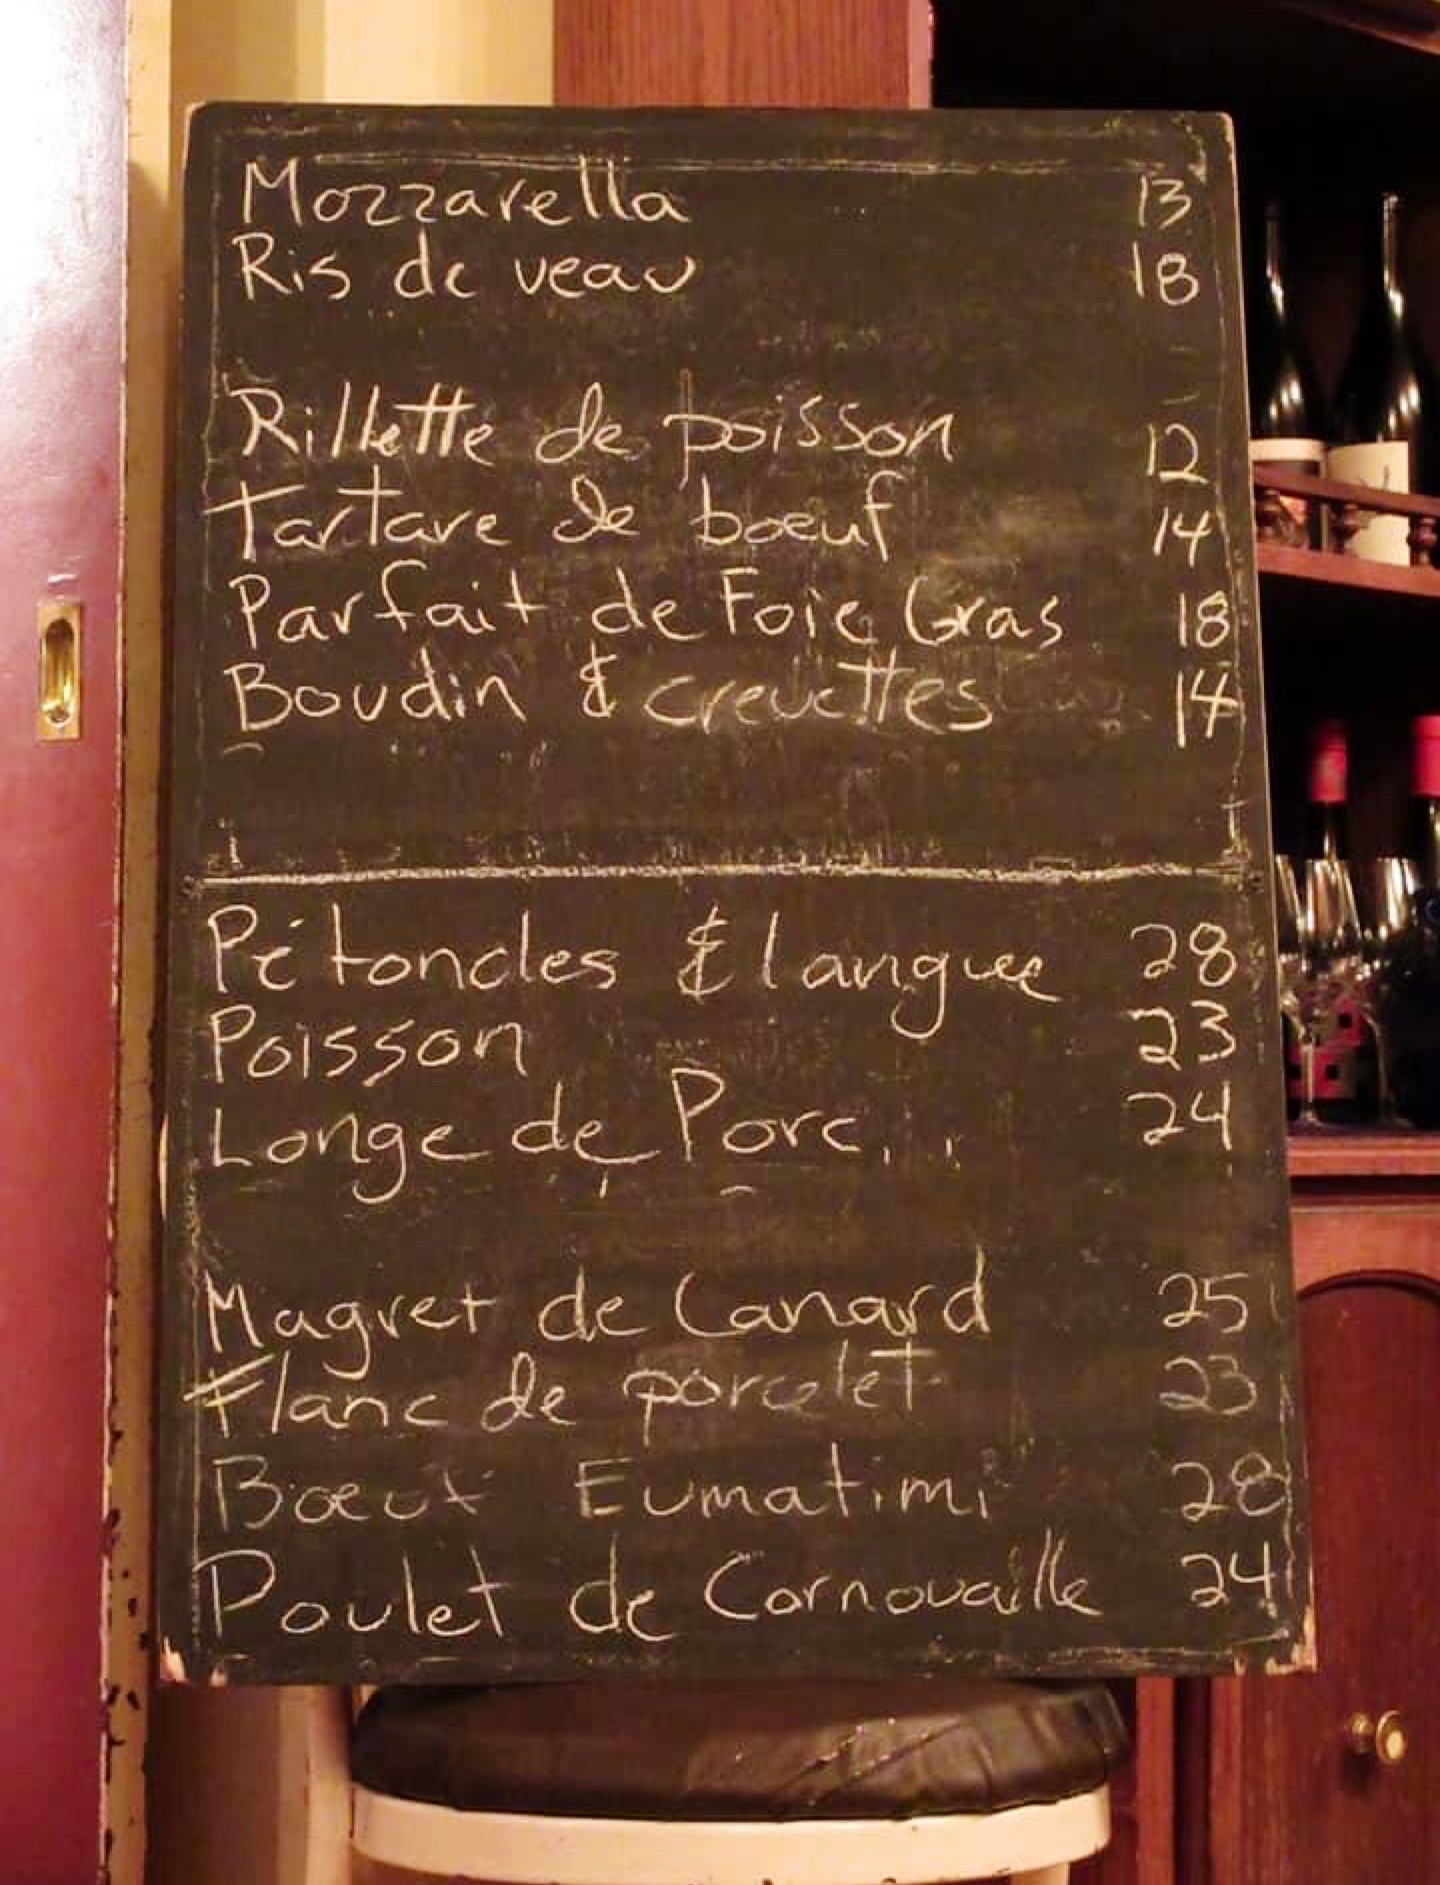 Mozzarella 13
Ris de veau 18
Rillette de poisson 12
Tartare de boeuf 14
Parfait de Foie Gras 18
Boudin & creuettes 14
Pétoncles & langue 28
Poisson 23
Longe de Porc 24
Magret de Canard 25
Flanc de porcelet 23
Boeuf Eumatimi 28
Poulet de Cornouaille 24